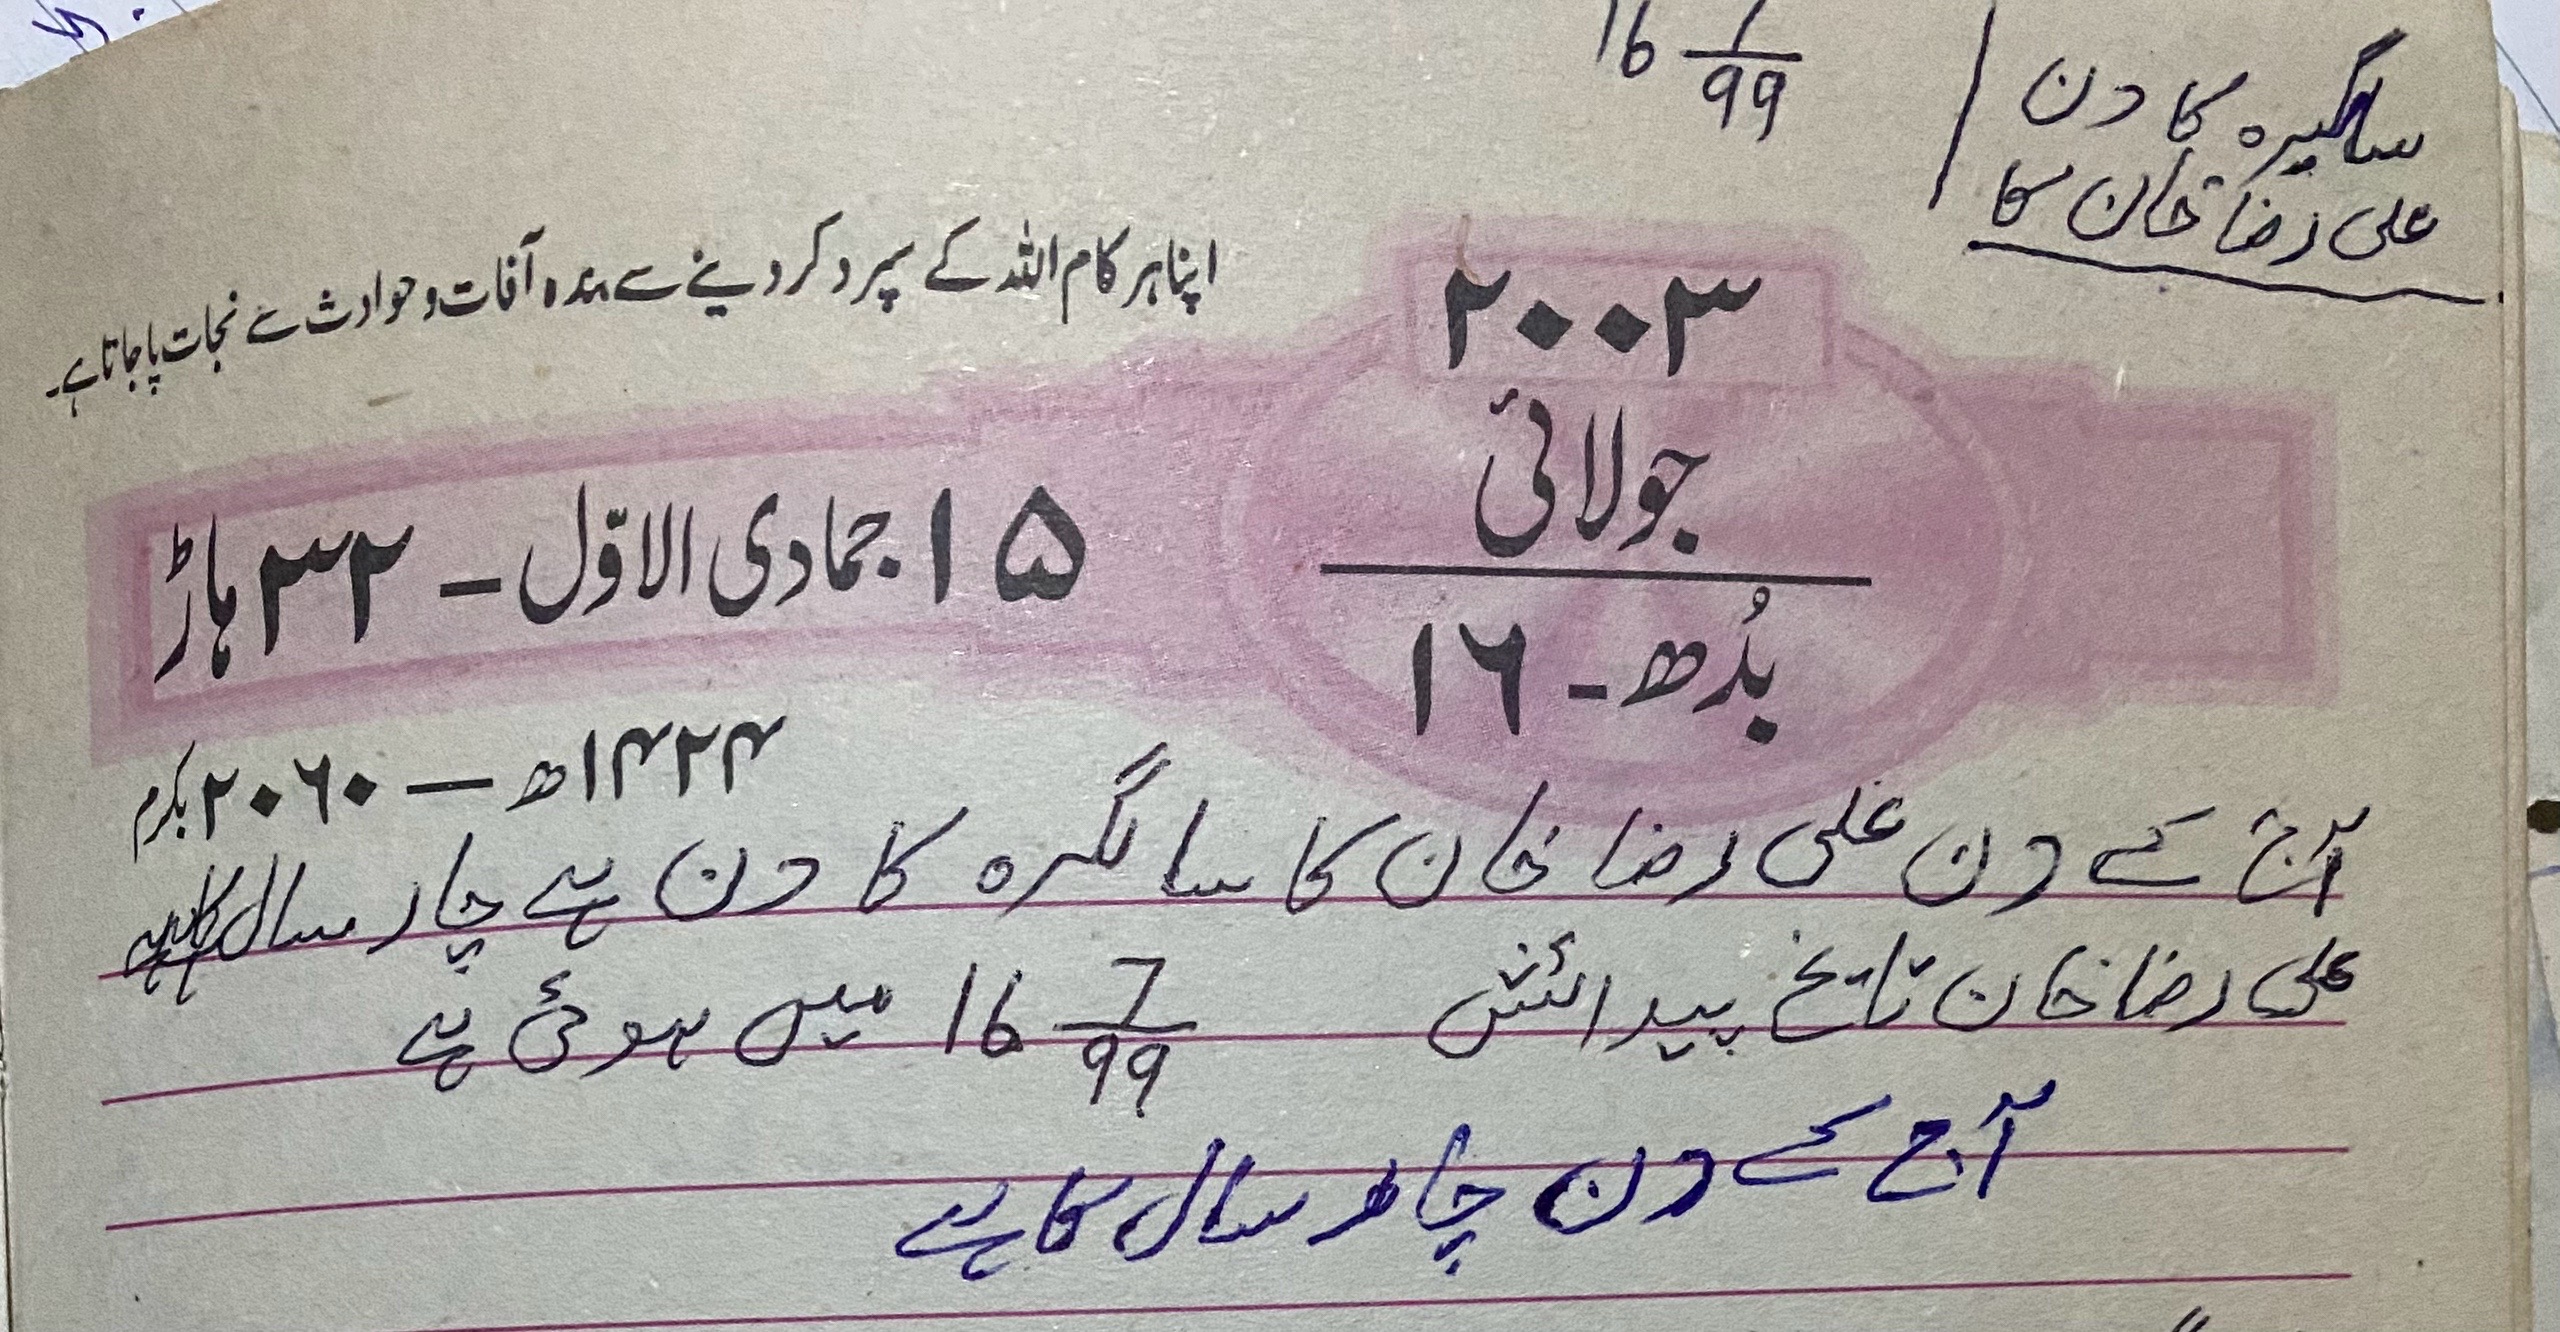 16 7/99
سالگیرہ کا دن
علی رضا خان کا
اپنا ہر کام اللہ کے سپرد کر دینے سے بندہ آفات و حوادث سے نجات پا جاتا ہے۔
۲۰۰۳
جولائی
بُدھ - ۱۶
۱۵ جمادی الاوّل - ۳۲ ہاڑ
۱۴۲۴ھ — ۲۰۶۰ بکرم
آج کے دن علی رضا خان کا سالگرہ کا دن ہے چار سال کا ہے
علی رضا خان تاریخ پیدائش 16 7/99 میں ہوئی ہے
آج کے دن چار سال کا ہے